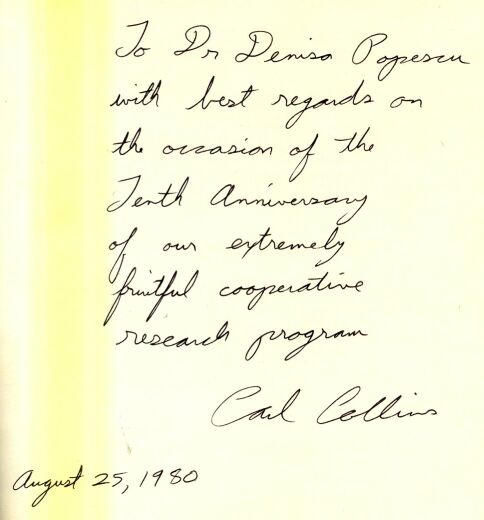 To Dr Denisa Popescu
with best regards on
the occasion of the
Tenth Anniversary
of our extremely
fruitful cooperative
research program
Carl Collins
August 25, 1980